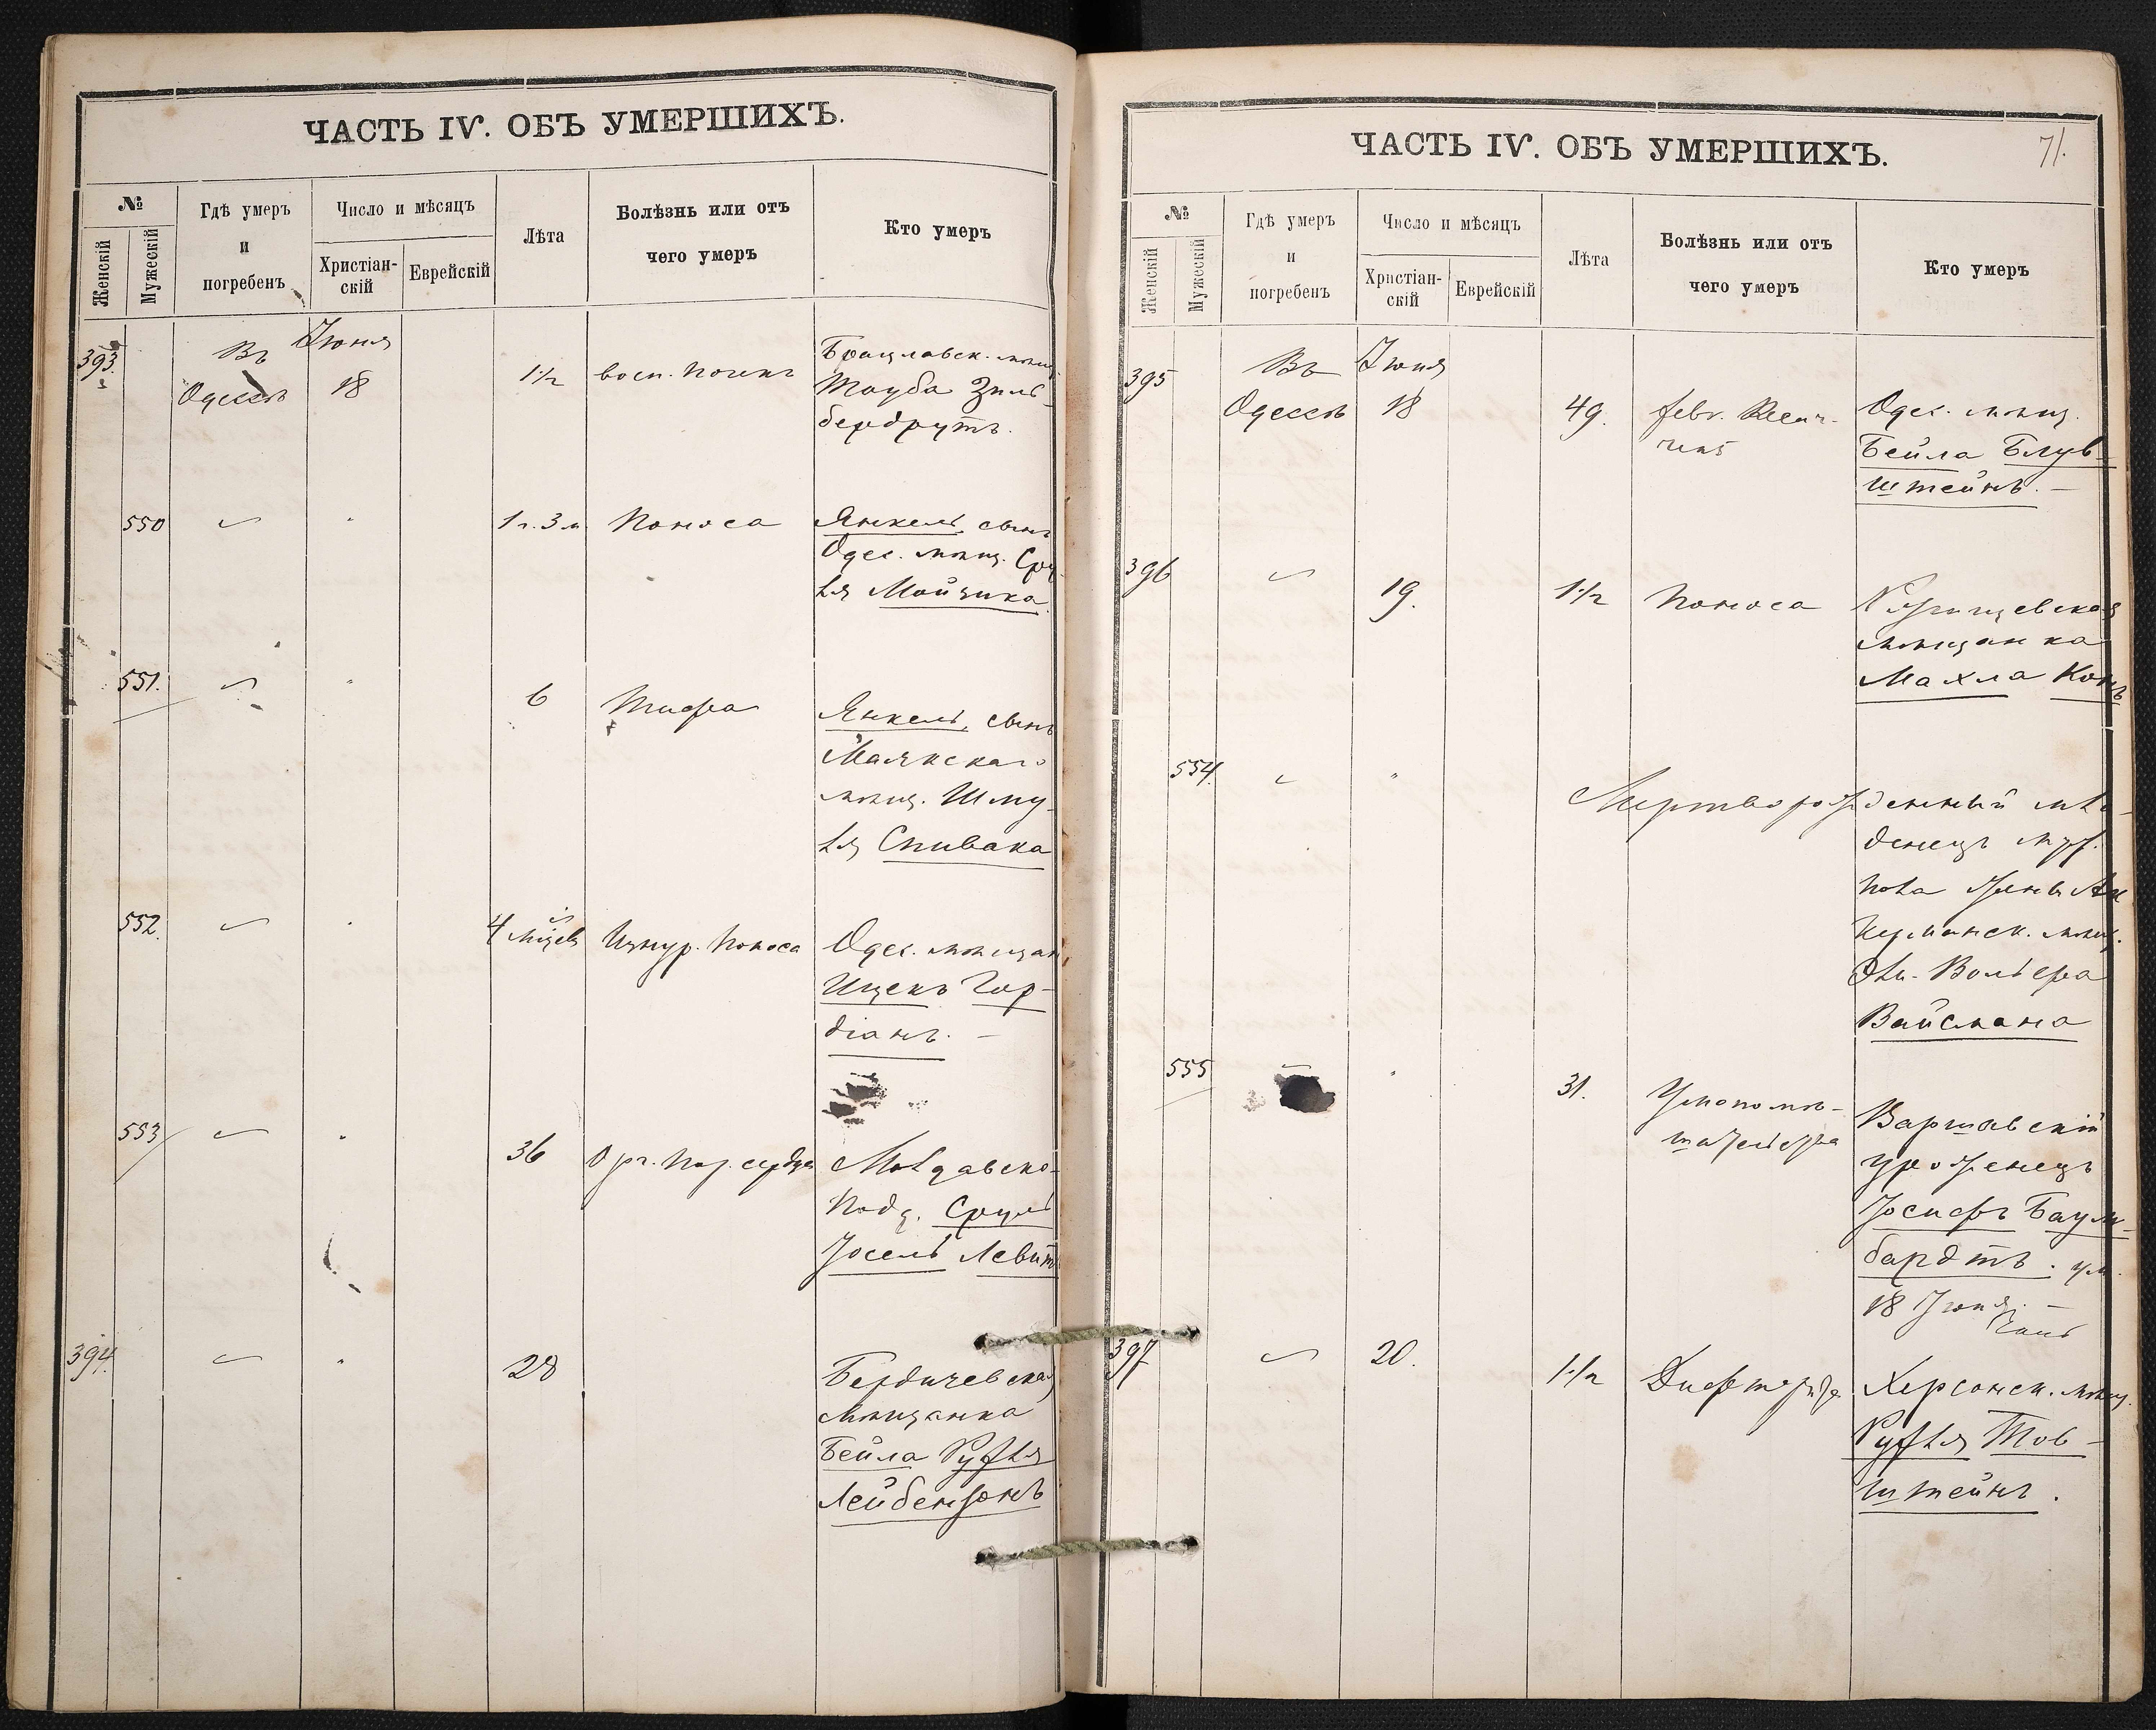 ЧАСТЬ IV. ОБЪ УМЕРШИХЪ.
№
Женскій
Мужескій
Гдѣ умеръ
и
погребенъ
Число и мѣсяцъ
Христіан-
скій
Еврейскій
Лѣта
Болѣзнь или отъ
чего умеръ
Кто умеръ
393.
Въ
Одессѣ
Іюня
18
1 1/2
восп. почекъ
Брацлавск. мѣщ.
Тауба Зиль-
бербрутъ.
550
1 г. 3 м.
Поноса
Янкель, сынъ
Одес. мѣщ. Сру-
ля Мойзика
551.
6
Тифа
Янкель, сынъ
Маякскаго
мѣщ. Шму-
ля Спивака
552.
4 мѣсца
Изнур. поноса
Одес. мѣщан.
Ицекъ Гор-
діанъ. —
553
36
Орг. пор. сердца
Молдавско-
подд. Сруль
Іосель Левит
394.
28
Бердичевская
мѣщанка
Бейла Рухля
Лейбензонъ
ЧАСТЬ IV. ОБЪ УМЕРШИХЪ.
71.
№
Женскій
Мужескій
Гдѣ умеръ
и
погребенъ
Число и мѣсяцъ
Христіан-
скій
Еврейскій
Лѣта
Болѣзнь или отъ
чего умеръ
Кто умеръ
395
Въ
Одессѣ
Іюня
18
49.
febr.
Одес. мѣщ.
Бейла Блув-
штейнъ. —
396
19.
1 1/2
Поноса
мѣщанка
МахлаКонъ
554.
Мертворожденный мла-
денецъ муж.
пола жены Ак
керманск. мѣщ.
Эли-Вольфа
Вайсмана
555
31.
Умопомѣ-
шательства
Варшавскій
уроженецъ
Іосифъ Баум-
бардтъ. ум.
18 Іюня. —
397
20.
1 1/2
Дифтерита
Херсонск. мѣщ.
Рухля Тов-
штейнъ.